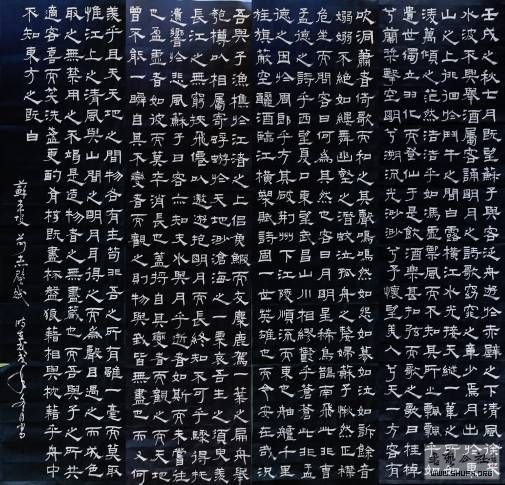 壬戌之秋七月既望蘇子與客泛舟遊於赤壁之下清風徐來
水波不興舉酒屬客誦明月之詩歌窈窕之章少焉月出於東
山之上徘徊於斗牛之間白露橫江水光接天縱一葦之所如
凌萬頃之茫然浩浩乎如馮虛禦風而不知其所止飄飄乎如
遺世獨立羽化而登仙於是飲酒樂甚扣弦而歌之歌曰桂棹
兮蘭槳擊空明兮溯流光渺渺兮予懷望美人兮天一方客有
吹洞簫者倚歌而和之其聲嗚嗚然如怨如慕如泣如訴餘音
嫋嫋不絕如縷舞幽壑之潛蛟泣孤舟之嫠婦蘇子愀然正襟
危坐而問客曰何為其然也客曰月明星稀烏鵲南飛此非曹
孟德之詩乎西望夏口東望武昌山川相繆鬱乎蒼蒼此非孟
德之困於周郎乎方其破荊州下江陵順流而東也舳艫千里
旌旗蔽空釃酒臨江橫槊賦詩固一世英雄也而今安在哉況
吾與子漁樵於江渚之上侶魚蝦而友麋鹿駕一葉之扁舟舉
匏樽以相屬寄蜉蝣於天地渺滄海之一粟哀吾生之須臾羨
長江之無窮挾飛僊以遨遊抱明月而長終知不可乎驟得托
遺響於悲風蘇子曰客亦知夫水與月乎逝者如斯而未嘗往
也盈虛者如彼而莫卒消長也蓋將自其變者而觀之而天地
曾不能一瞬自其不變者而觀之則物與我皆無盡也而又何
羨乎且夫天地之間物各有主苟非吾之所有雖一毫而莫取
惟江上之清風與山間之明月耳得之而為聲目遇之而成色
取之無禁用之不竭是造物者之無盡藏也而吾與子之所共
適客喜而笑洗盞更酌肴核既盡杯盤狼藉相與枕藉乎舟中
不知東方之既白
蘇東坡前赤壁賦